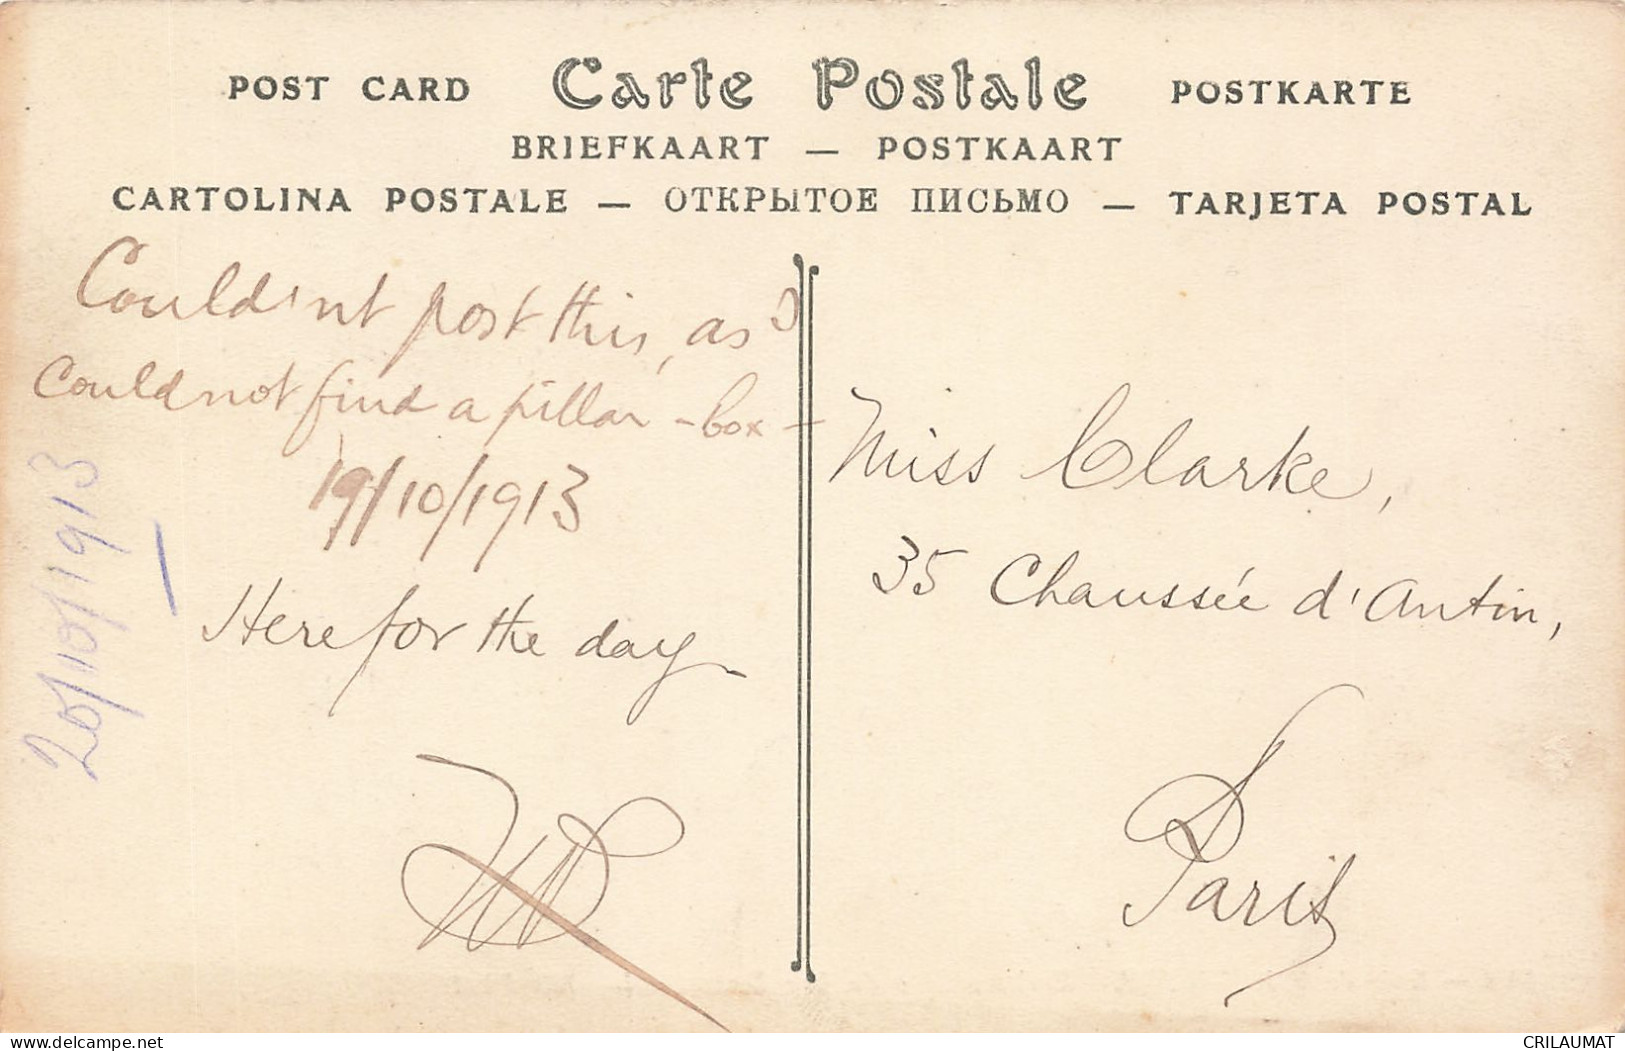 POST CARD Carte Postale POSTKARTE
BRIEFKAART — POSTKAART
CARTOLINA POSTALE — ОТКРЫТОЕ ПИСЬМО — TARJETA POSTAL
Could'nt post this, as I
Could not find a pillar-box -
19/10/1913
Here for the day -
20/10/1913
Miss Clarke,
35 Chaussée d'Antin,
Paris
delcampe.net
CRILAUMAT